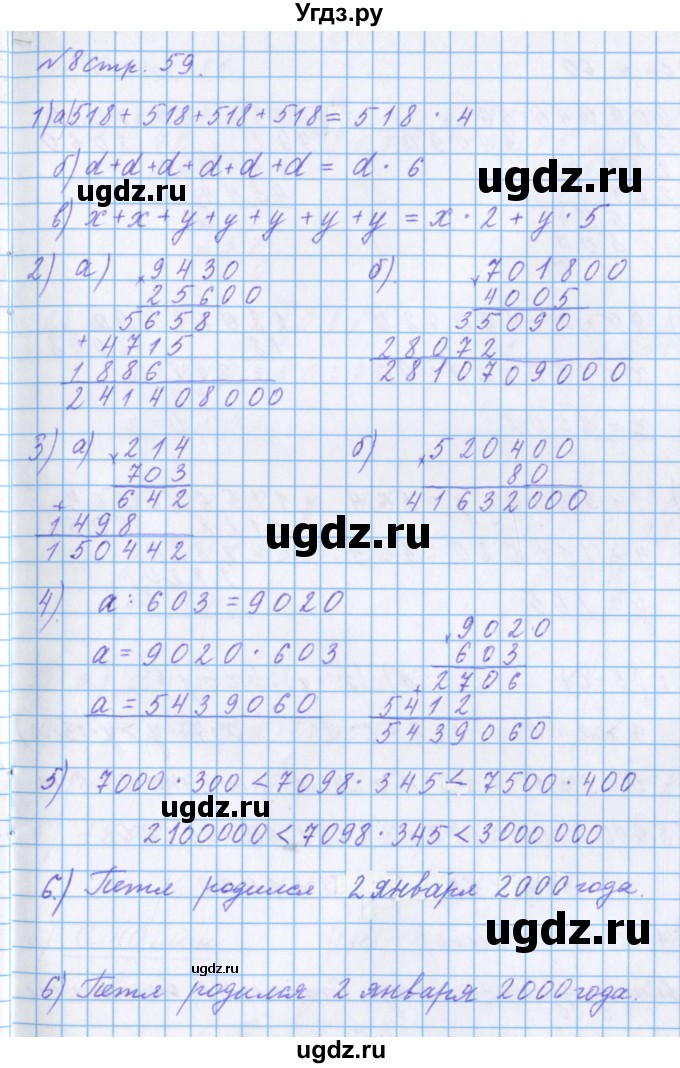 Угдз.ру
№8 стр. 59.
1) а) 518 + 518 + 518 + 518 = 518 · 4
б) d + d + d + d + d + d = d · 6
ugdz.ru
ugdz.ru
в) x + x + y + y + y + y + y = x · 2 + y · 5
2) а) × 9430
25600
5658
+ 4715
1886
241408000
б) × 701800
4005
35090
28072
2810709000
3) а) × 214
703
+ 642
1498
150442
б) × 520400
80
41632000
ugdz.ru
4) a : 603 = 9020
a = 9020 · 603
a = 5439060
× 9020
603
+ 2706
5412
5439060
5) 7000 · 300 < 7098 · 345 < 7500 · 400
ugdz.ru
2100000 < 7098 · 345 < 3000000
6) Петя родился 2 января 2000 года.
ugdz.ru
ugdz.ru
6) Петя родился 2 января 2000 года.
ugdz.ru